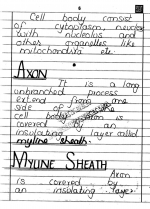 6
Cell body consist
of cytoplasm, nucleus
with nucleolus and
other organelles like
mitochondria etc.
AXON
It is a long
unbranched process
extend from one
side of
cell body. Axon is
covered by an
insulating layer called
myline sheath.
MYLINE SHEATH
Axon
is covered by
an insulating layer